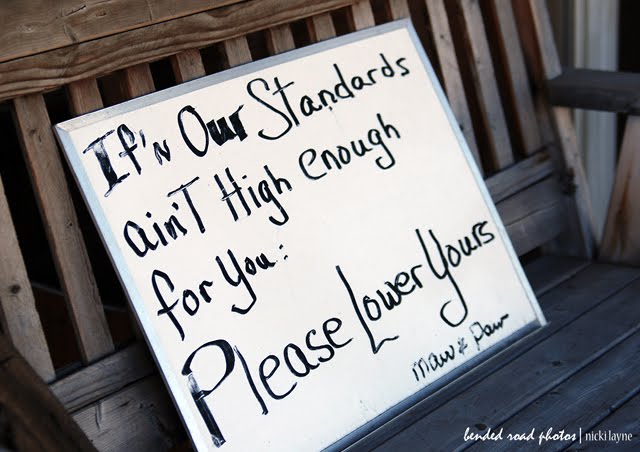 If'n Our Standards
ain't High enough
for You:
Please Lower Yours
maw & Paw
bended road photos | nicki layne